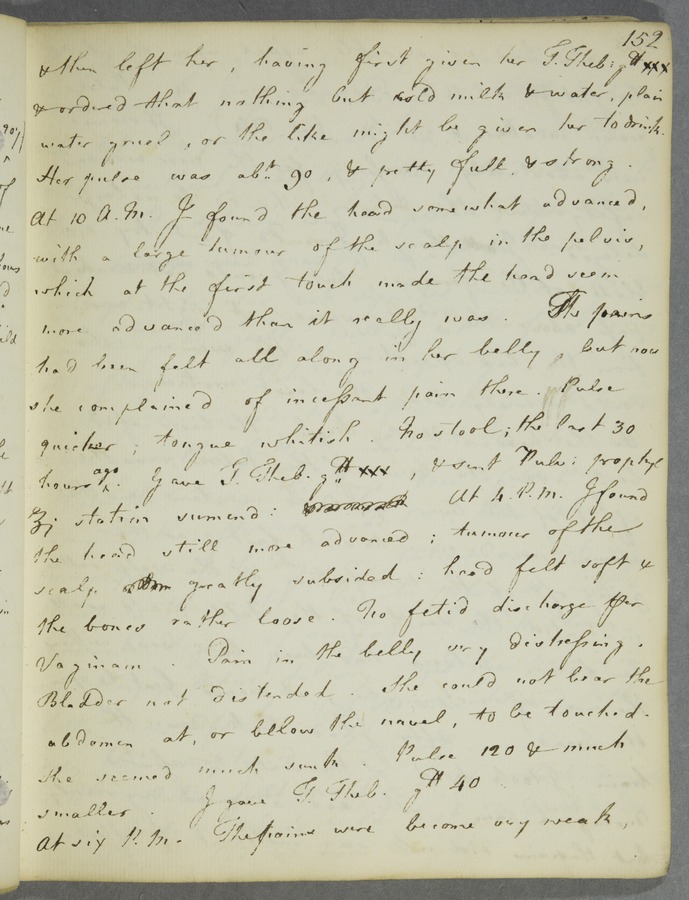 152
& then left her, having first given her T. Theb: gtt xxx
& ordered that nothing but cold milk & water, plain
water gruel, or the like might be given her to drink.
Her pulse was abt. 90, & pretty full & strong.
At 10 A.M. I found the head somewhat advanced,
with a large tumour of the scalp in the pelvis,
which at the first touch made the head seem
more advanced than it really was. The pains
had been felt all along in her belly, but now
she complained of incessant pain there. Pulse
quicker; tongue whitish. No stool; the last 30
hours ago. Gave T. Theb. gtt xxx, & sent Pulv: prophyl
ʒj statim sumend: At 4. P.M. I found
the head still more advanced; tumour of the
scalp greatly subsided: head felt soft &
the bones rather loose. No fetid discharge per
Vaginam. Pain in the belly very distressing.
Bladder not distended. She could not bear the
abdomen at, or bellow the navel, to be touched.
She seemed much sunk. Pulse 120 & much
smaller. I gave T. Theb. gtt 40
At six P.M. The pains were become very weak,